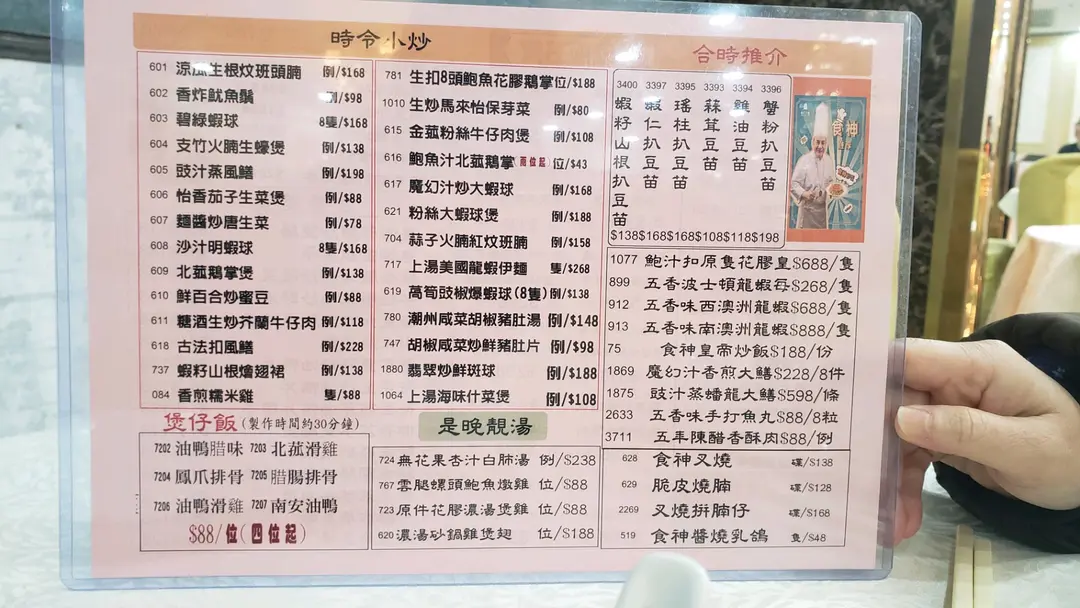 時令小炒
601 涼瓜生根炆班頭腩 例/$168
602 香炸魷魚鬚 例/$98
603 碧綠蝦球 8隻/$168
604 支竹火腩生蠔煲 例/$138
605 豉汁蒸風鱔 例/$198
606 怡香茄子生菜煲 例/$88
607 麵醬炒唐生菜 例/$78
608 沙汁明蝦球 8隻/$168
609 北菰鵝掌煲 例/$138
610 鮮百合炒蜜豆 例/$88
611 糖酒生炒芥蘭牛仔肉 例/$118
618 古法扣風鱔 例/$228
737 蝦籽山根燴翅裙 例/$138
084 香煎糯米雞 隻/$88
781 生扣8頭鮑魚花膠鵝掌 位/$188
1010 生炒馬來怡保芽菜 例/$80
615 金菰粉絲牛仔肉煲 例/$108
616 鮑魚汁北菰鵝掌 兩位起 位/$43
617 魔幻汁炒大蝦球 例/$168
621 粉絲大蝦球煲 例/$188
704 蒜子火腩紅炆班腩 例/$158
717 上湯美國龍蝦伊麵 隻/$268
619 萵筍豉椒爆蝦球(8隻) 例/$138
780 潮州咸菜胡椒豬肚湯 例/$148
747 胡椒咸菜炒鮮豬肚片 例/$98
1880 翡翠炒鮮斑球 例/$188
1064 上湯海味什菜煲 例/$108
合時推介
3400 蝦籽山根扒豆苗 $138
3397 蝦仁扒豆苗 $168
3395 瑤柱扒豆苗 $168
3393 蒜茸豆苗 $108
3394 雞油豆苗 $118
3396 蟹粉扒豆苗 $198
食神
1077 鮑汁扣原隻花膠皇$688/隻
899 五香波士頓龍蝦每$268/隻
912 五香味西澳洲龍蝦$688/隻
913 五香味南澳洲龍蝦$888/隻
75 食神皇帝炒飯$188/份
1869 魔幻汁香煎大鱔$228/8件
1875 豉汁蒸蟠龍大鱔$598/條
2633 五香味手打魚丸$88/8粒
3711 五年陳醋香酥肉$88/例
煲仔飯(製作時間約30分鐘)
7202 油鴨腊味 7203 北菰滑雞
7204 鳳爪排骨 7205 腊腸排骨
7206 油鴨滑雞 7207 南安油鴨
$88/位(四位起)
是晚靚湯
724 無花果杏汁白肺湯 例/$238
767 雲腿螺頭鮑魚燉雞 位/$88
723 原件花膠濃湯煲雞 位/$88
620 濃湯砂鍋雞煲翅 位/$188
628 食神叉燒 碟/$138
629 脆皮燒腩 碟/$128
2269 叉燒拼腩仔 碟/$168
519 食神醬燒乳鴿 隻/$48